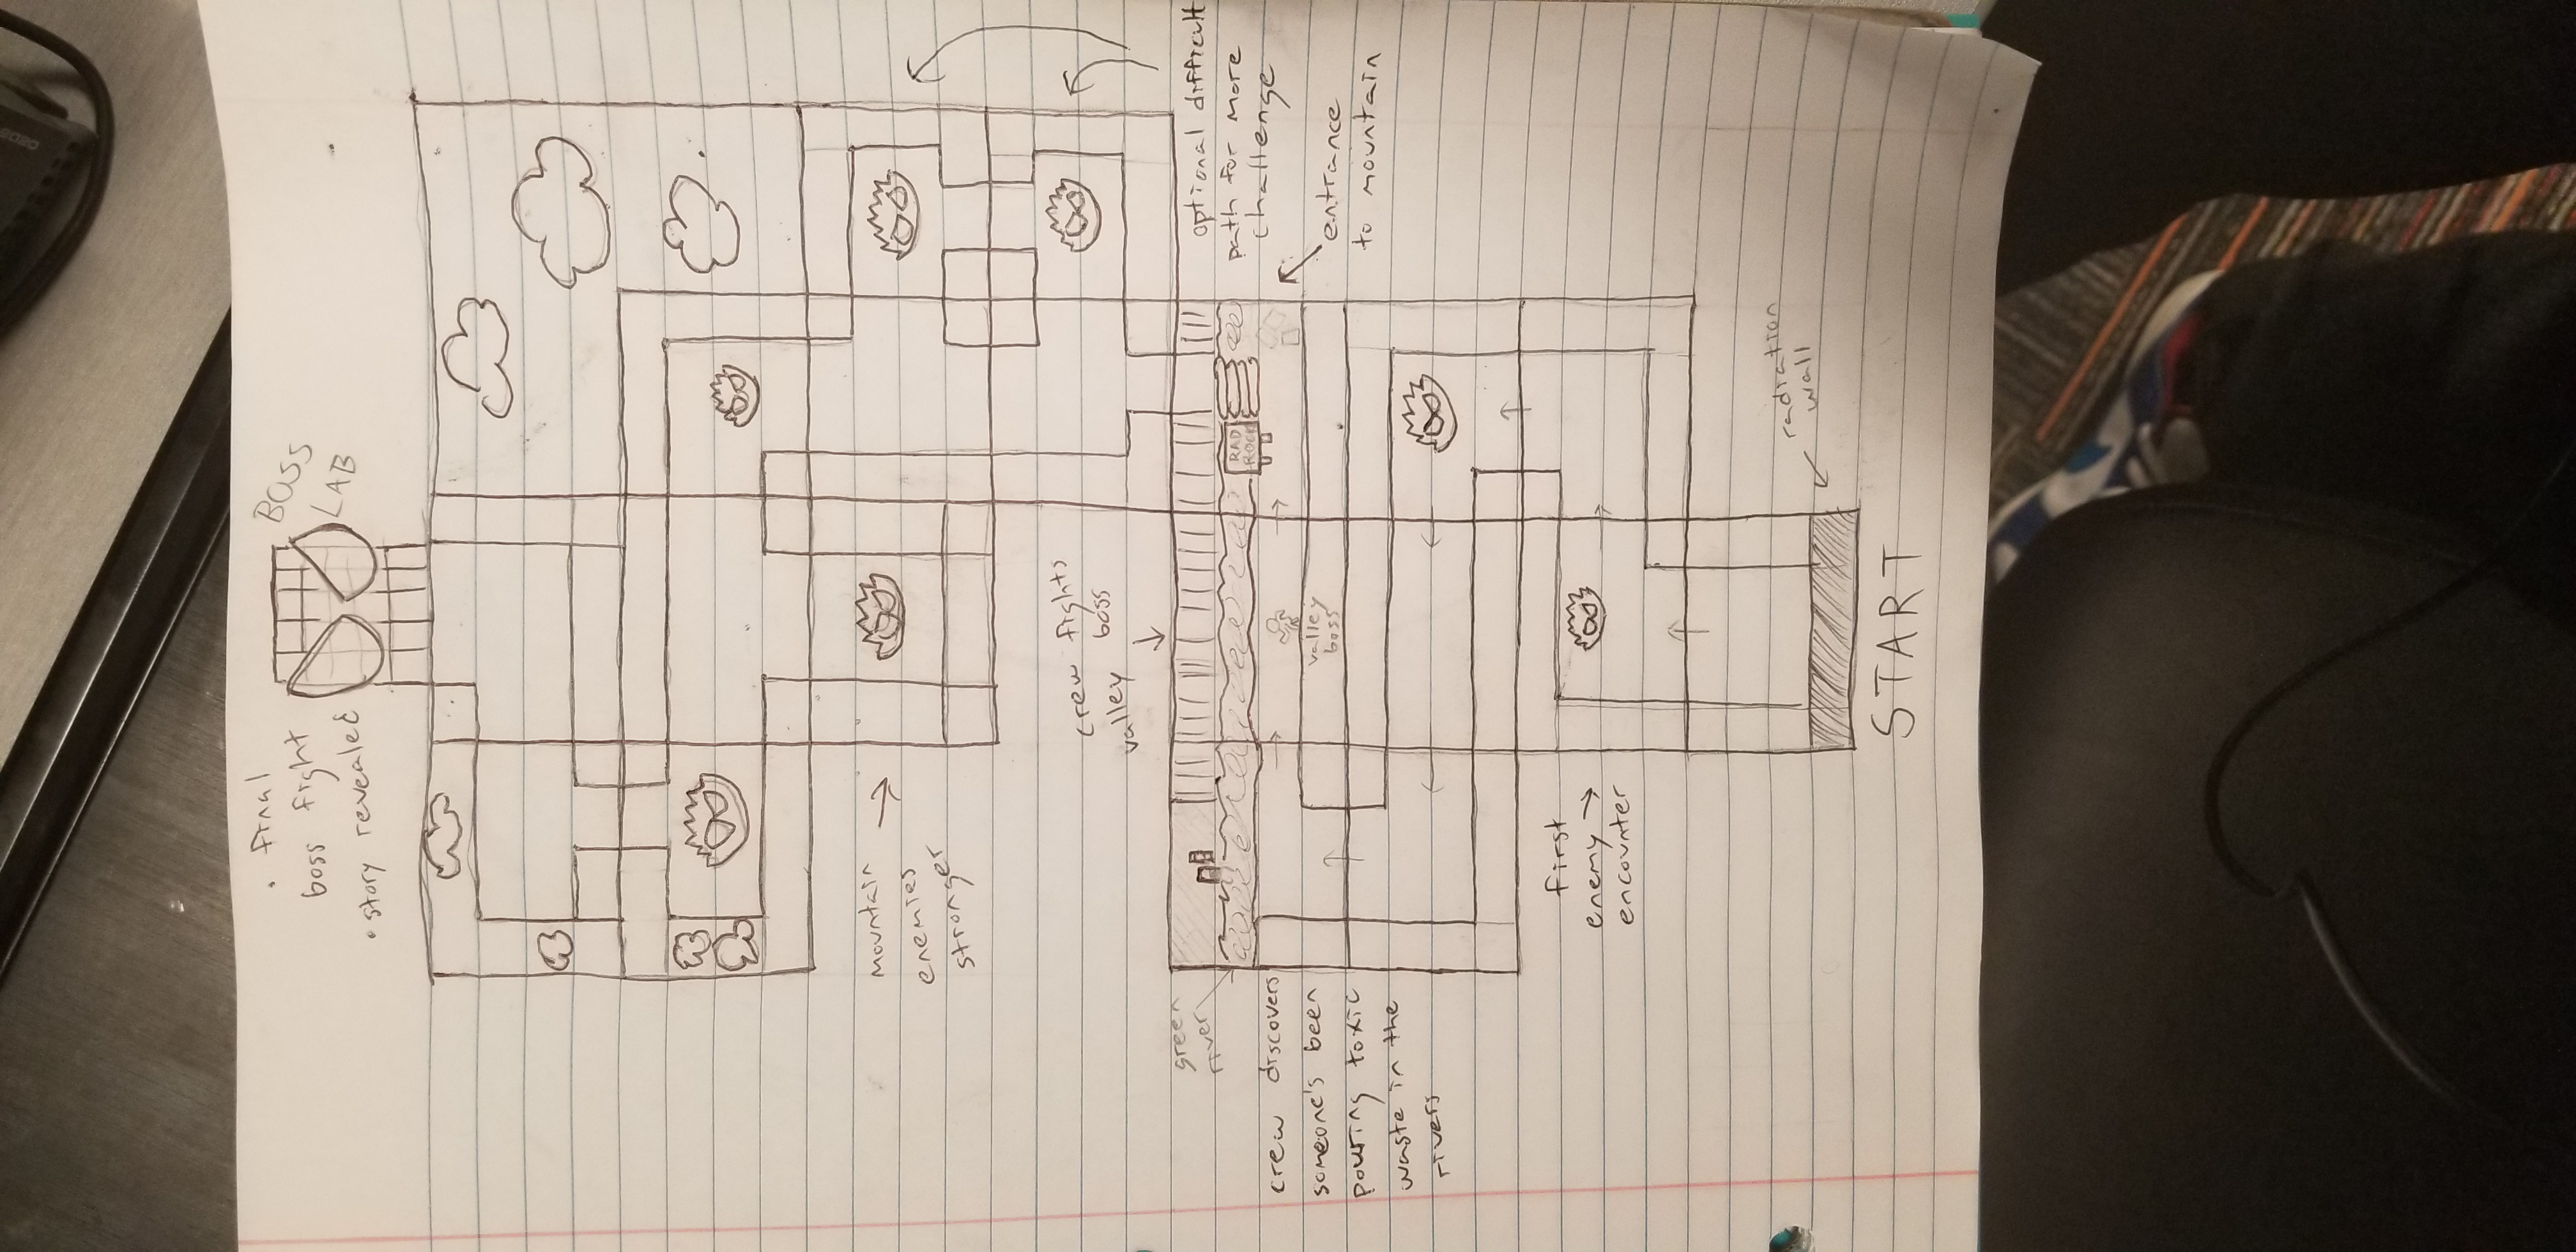 • final
boss fight
• story revealed
BOSS
LAB
mountain
enemies
stronger
crew fights
valley boss
green
river
RAD
ROCK
optional difficult
path for more
challenge
crew discovers
someone's been
pouring toxic
waste in the
rivers
valley
boss
entrance
to mountain
first
enemy
encounter
radiation
wall
START